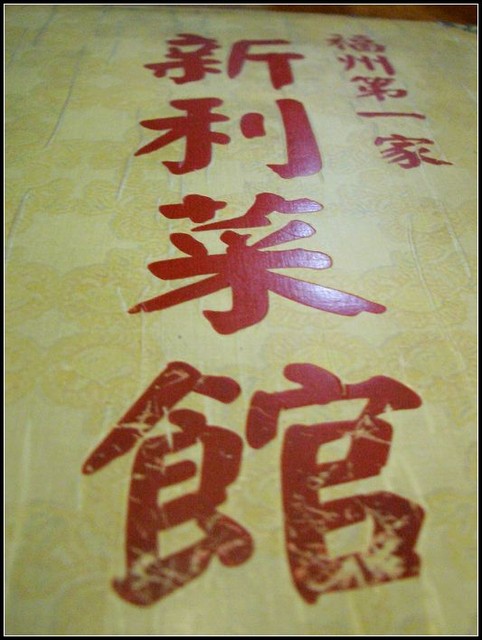 福州第一家
新利菜館